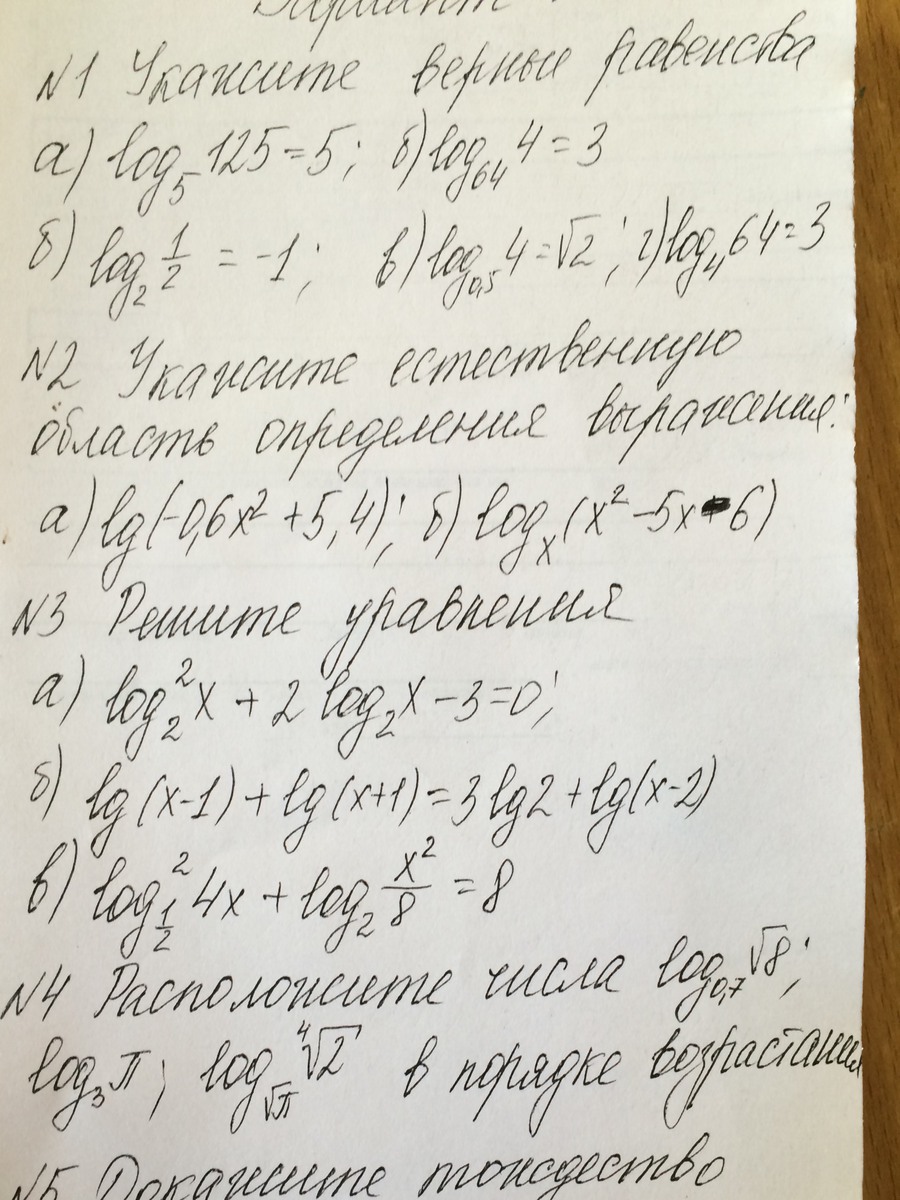 Вариант
№1 Укажите верные равенства
а) log₅ 125 = 5; б) log₆₄ 4 = 3
б) log₂ 1/2 = -1; в) log₀,₅ 4 = √2; г) log₄ 64 = 3
№2 Укажите естественную
область определения выражения:
а) lg(-0,6x² + 5,4); б) logₓ(x² - 5x - 6)
№3 Решите уравнения
а) log₂² x + 2 log₂ x - 3 = 0;
б) lg(x-1) + lg(x+1) = 3 lg 2 + lg(x-2)
в) log²_{1/2} 4x + log₂ x²/8 = 8
№4 Расположите числа log₀,₇ √8;
log₃ π; log_{√π} ⁴√2 в порядке возрастания
№5 Докажите тождество